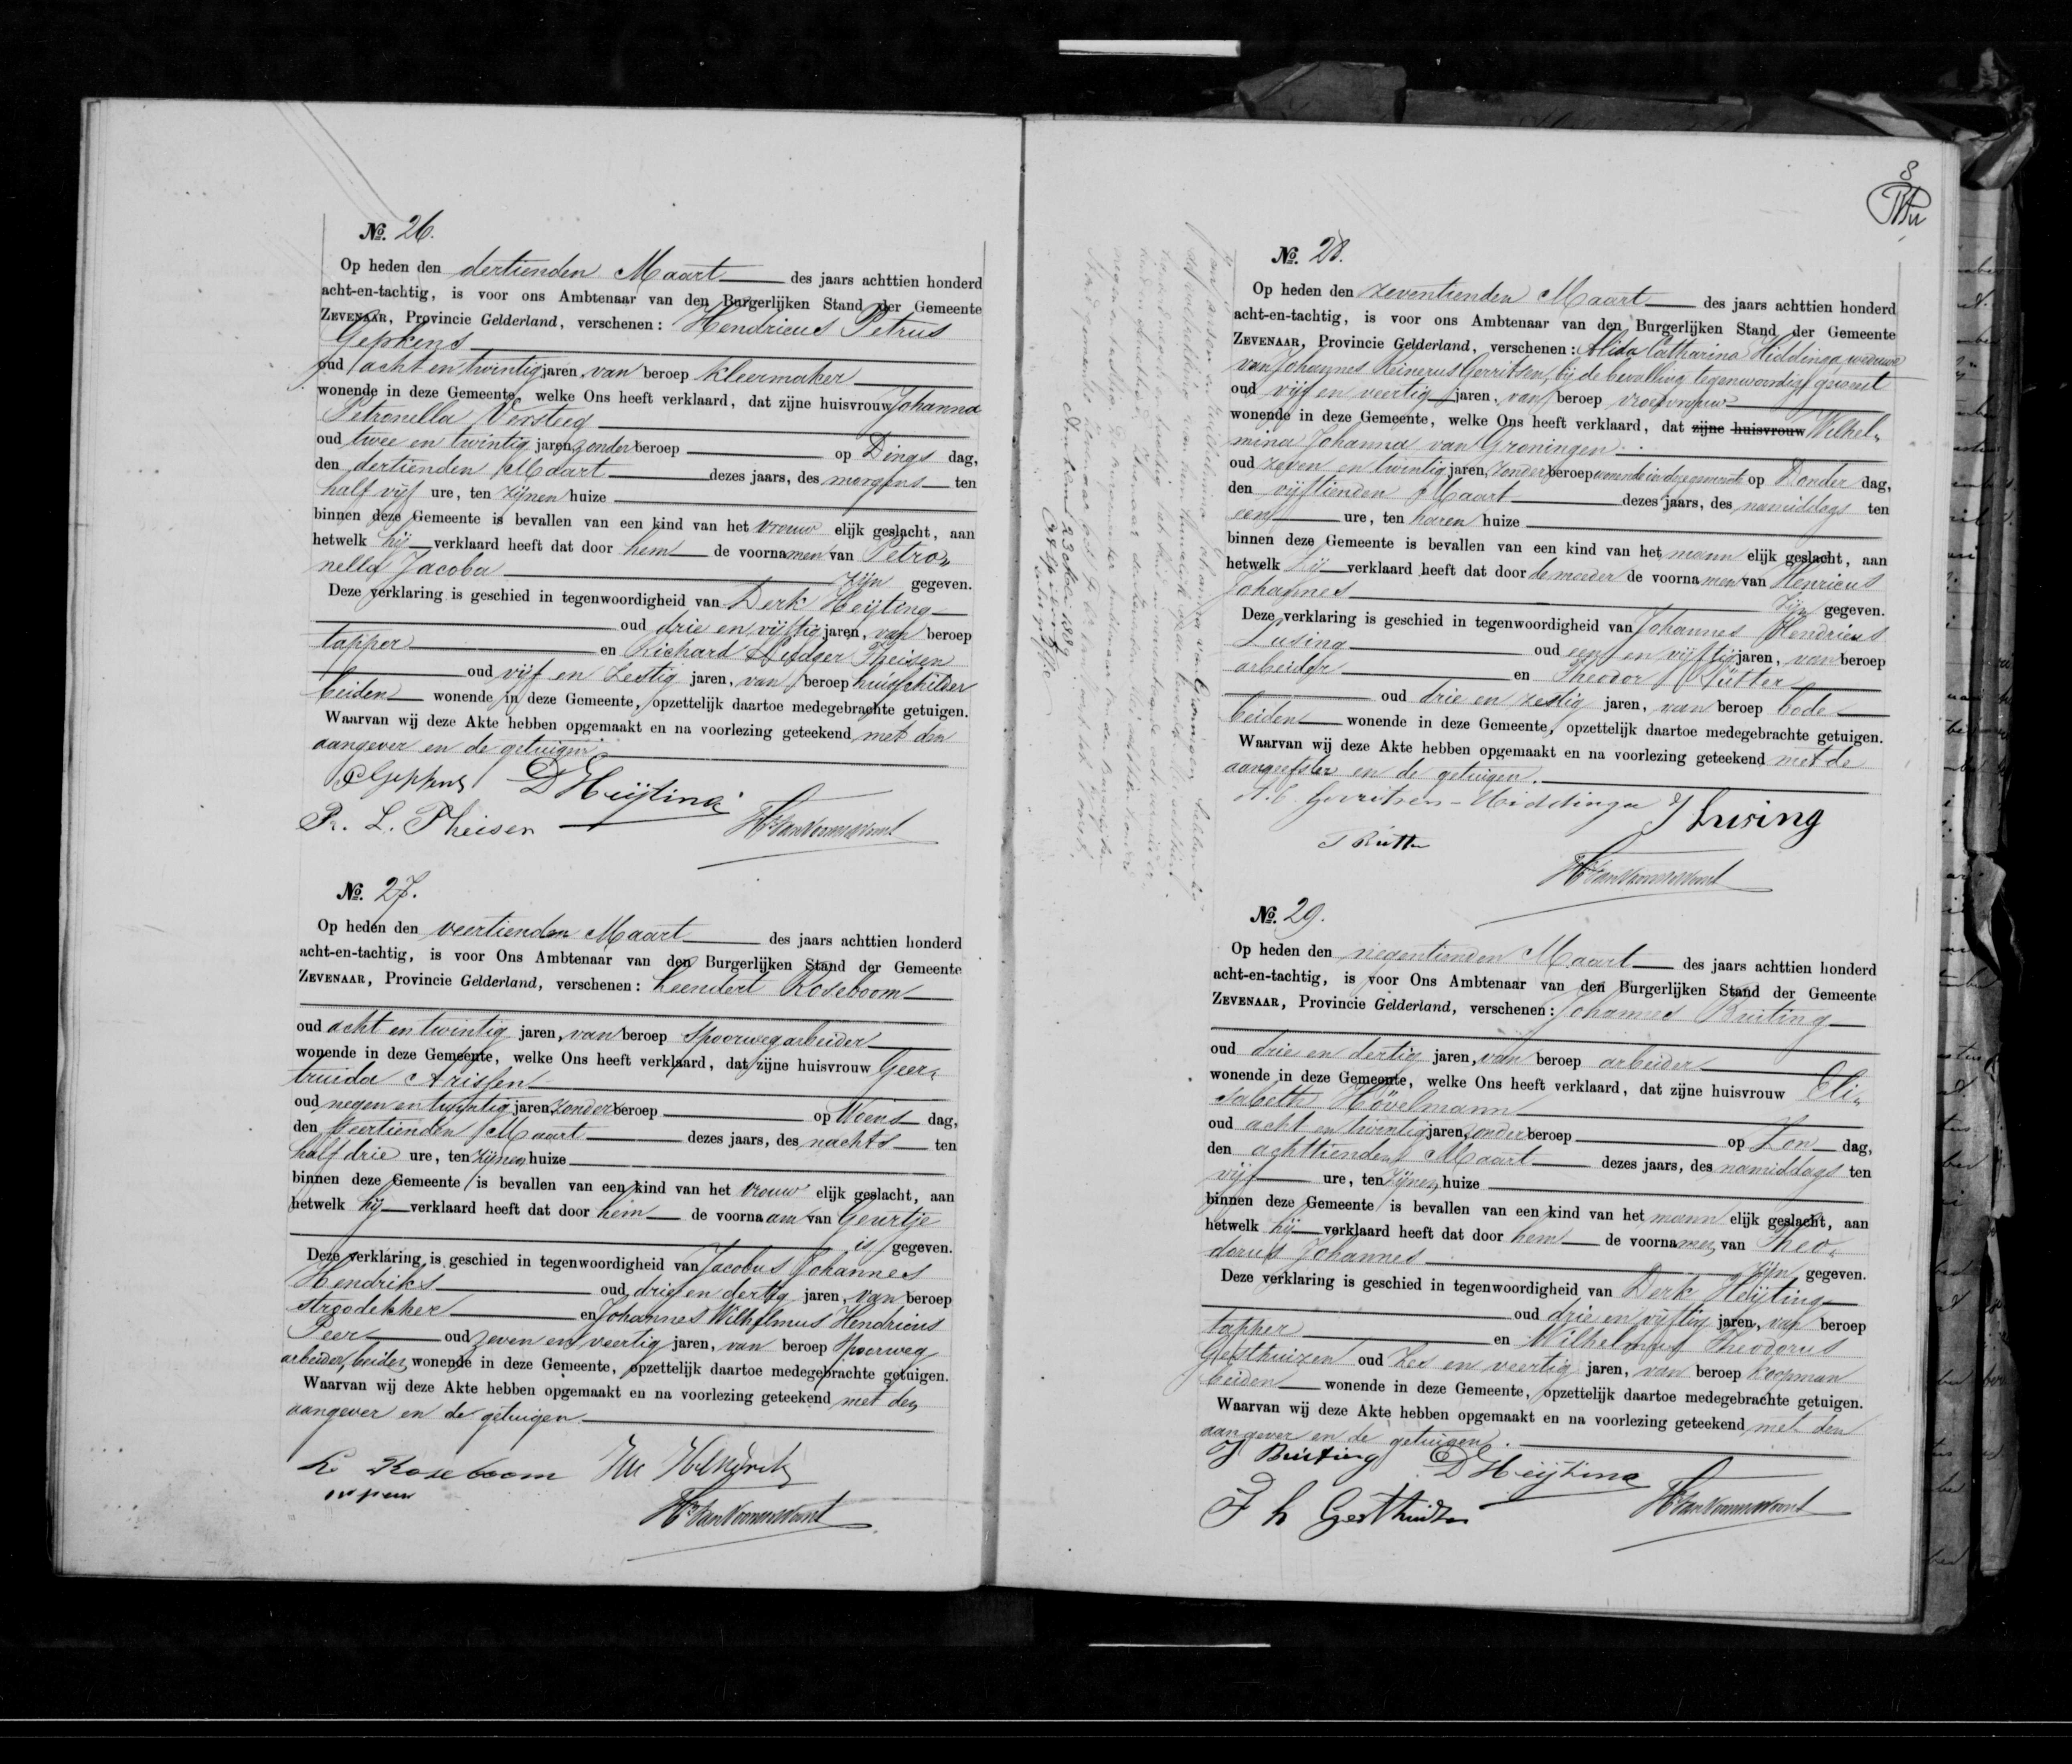 No. 26.
Op heden den dertienden Maart des jaars achttien honderd
acht-en-tachtig, is voor ons Ambtenaar van den Burgerlijken Stand der Gemeente
Zevenaar, Provincie Gelderland, verschenen: Hendricus Petrus
Gepkens
oud acht en twintig jaren, van beroep kleermaker
wonende in deze Gemeente, welke Ons heeft verklaard, dat zijne huisvrouw Johanna
Petronella Versteeg
oud twee en twintig jaren, zonder beroep op Dings dag,
den dertienden Maart dezes jaars, des morgens ten
half vijf ure, ten zijnen huize
binnen deze Gemeente is bevallen van een kind van het vrouw elijk geslacht, aan
hetwelk hij verklaard heeft dat door hem de voornamen van Petro„
nella Jacoba zijn gegeven.
Deze verklaring is geschied in tegenwoordigheid van Derk Heijting
oud drie en vijftig jaren, van beroep
tapper en Richard Ludger Theisen
oud vijf en zestig jaren, van beroep huisschilder
beiden wonende in deze Gemeente, opzettelijk daartoe medegebrachte getuigen.
Waarvan wij deze Akte hebben opgemaakt en na voorlezing geteekend met den
aangever en de getuigen.
Gepkens D Heijting
R. L. Theisen
No. 27.
Op heden den veertienden Maart des jaars achttien honderd
acht-en-tachtig, is voor Ons Ambtenaar van den Burgerlijken Stand der Gemeente
Zevenaar, Provincie Gelderland, verschenen: Leendert Roseboom
oud acht en twintig jaren, van beroep spoorwegarbeider
wonende in deze Gemeente, welke Ons heeft verklaard, dat zijne huisvrouw Geer„
truida Arissen
oud negen en twintig jaren zonder beroep op Woens dag,
den veertienden Maart dezes jaars, des nachts ten
half drie ure, ten zijnen huize
binnen deze Gemeente is bevallen van een kind van het vrouw elijk geslacht, aan
hetwelk hij verklaard heeft dat door hem de voornaam van Geurtje
is gegeven.
Deze verklaring is geschied in tegenwoordigheid van Jacobus Johannes
Hendriks oud drie en dertig jaren, van beroep
stroodekker en Johannes Wilhelmus Hendricus
Peer oud zeven en veertig jaren, van beroep spoorweg
arbeider, beiden wonende in deze Gemeente, opzettelijk daartoe medegebrachte getuigen.
Waarvan wij deze Akte hebben opgemaakt en na voorlezing geteekend met den
aangever en de getuigen.
L. Roseboom
8
No. 28.
Op heden den zeventienden Maart des jaars achttien honderd
acht-en-tachtig, is voor ons Ambtenaar van den Burgerlijken Stand der Gemeente
Zevenaar, Provincie Gelderland, verschenen: Alida Catharina Hiddinga, weduwe
van Johannes Reinerus Gerritsen, bij de bevalling tegenwoordig geweest
oud vijf en veertig jaren, van beroep vroedvrouw
wonende in deze Gemeente, welke Ons heeft verklaard, dat zijne huisvrouw Wilhel„
mina Johanna van Groningen
oud zeven en twintig jaren, zonder beroep wonende in deze gemeente op Donder dag,
den vijftienden Maart dezes jaars, des namiddags ten
een ure, ten haren huize
binnen deze Gemeente is bevallen van een kind van het mann elijk geslacht, aan
hetwelk zij verklaard heeft dat door de moeder de voornamen van Henricus
Johannes zijn gegeven.
Deze verklaring is geschied in tegenwoordigheid van Johannes Hendricus
Lusing oud een en vijftig jaren, van beroep
arbeider en Theodor Rütter
oud drie en zestig jaren, van beroep bode
beiden wonende in deze Gemeente, opzettelijk daartoe medegebrachte getuigen.
Waarvan wij deze Akte hebben opgemaakt en na voorlezing geteekend met de
aangeefster en de getuigen.
A. C. Gerritsen-Hiddinga J Lusing
T Rütter
No. 29.
Op heden den negentienden Maart des jaars achttien honderd
acht-en-tachtig, is voor Ons Ambtenaar van den Burgerlijken Stand der Gemeente
Zevenaar, Provincie Gelderland, verschenen: Johannes Bruiting
oud drie en dertig jaren, van beroep arbeider
wonende in deze Gemeente, welke Ons heeft verklaard, dat zijne huisvrouw Eli„
sabeth Hövelmann
oud acht en twintig jaren, zonder beroep op Zon dag,
den achttienden Maart dezes jaars, des namiddags ten
vijf ure, ten zijnen huize
binnen deze Gemeente is bevallen van een kind van het mann elijk geslacht, aan
hetwelk hij verklaard heeft dat door hem de voornamen van Theo„
dorus Johannes zijn gegeven.
Deze verklaring is geschied in tegenwoordigheid van Derk Heijting
oud drie en vijftig jaren, van beroep
tapper en Wilhelmus Theodorus
Gesthuizen oud zes en veertig jaren, van beroep koopman
beiden wonende in deze Gemeente, opzettelijk daartoe medegebrachte getuigen.
Waarvan wij deze Akte hebben opgemaakt en na voorlezing geteekend met den
aangever en de getuigen.
J Bruiting D Heijting